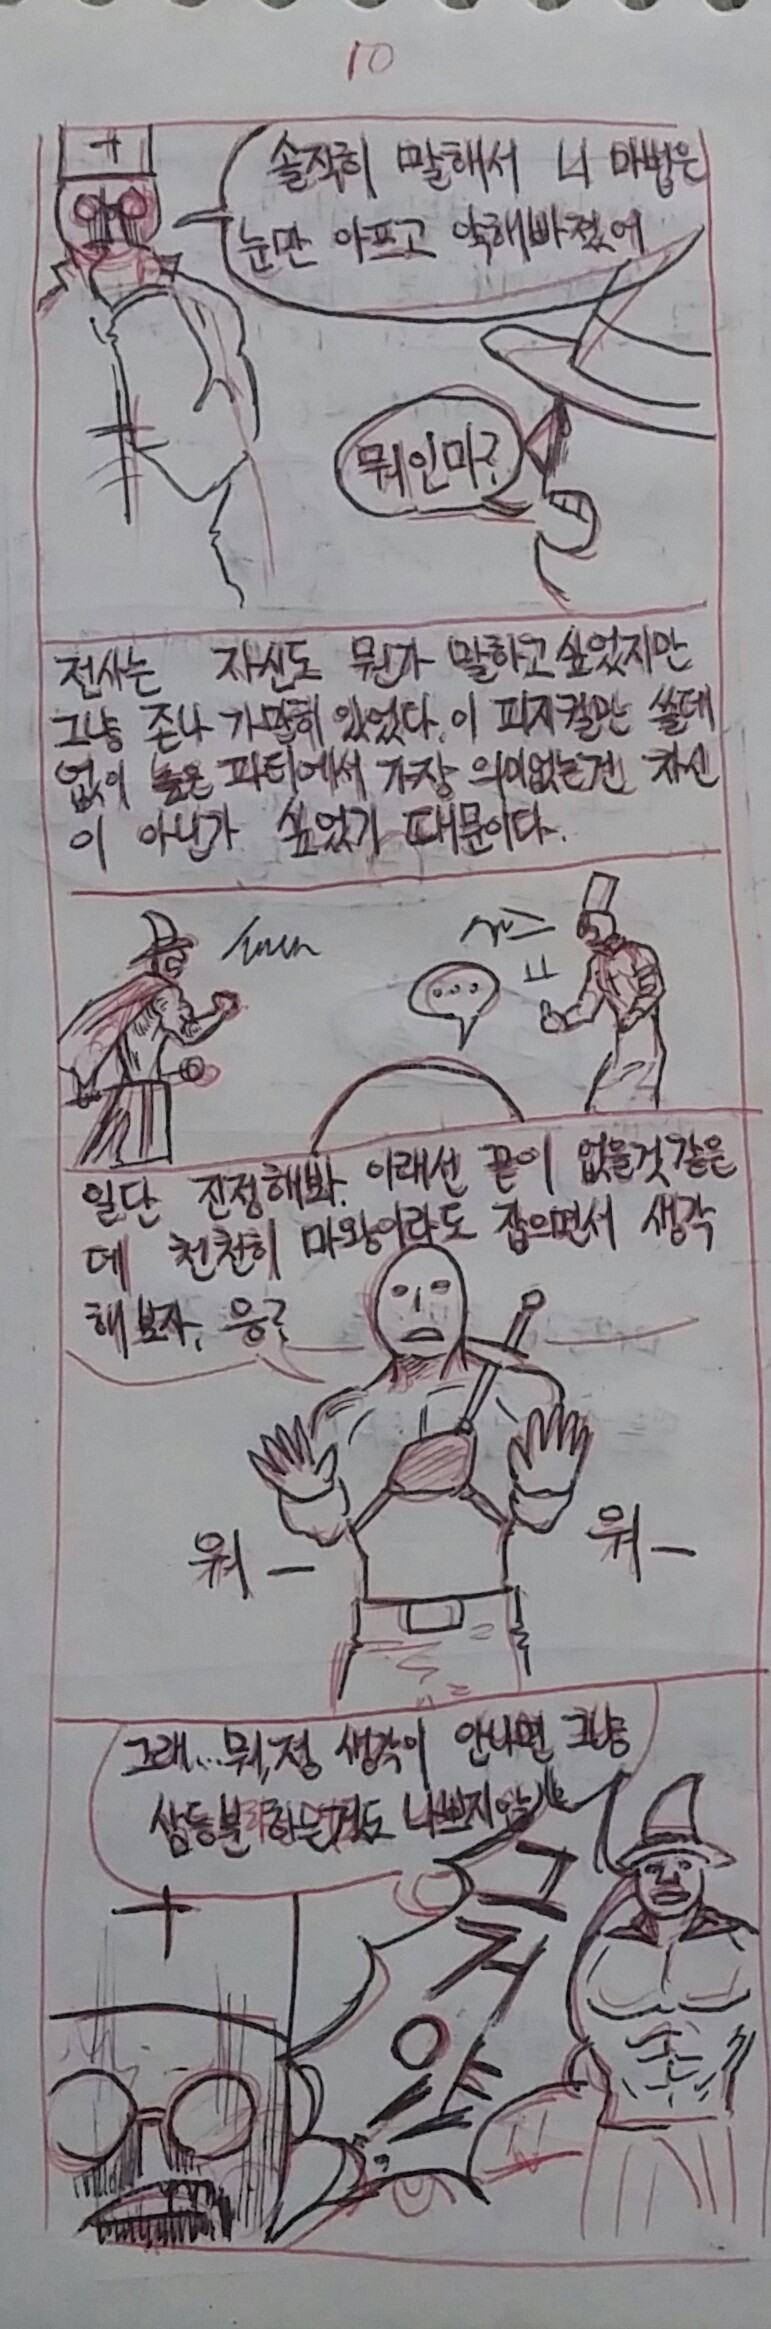 10
솔직히 말해서 니 마법은
눈만 아프고 약해빠졌어
뭐인마?
전사는 자신도 뭔가 말하고 싶었지만
그냥 존나 가만히 있었다. 이 피지컬만 쓸데
없이 높은 파티에서 가장 의미없는건 자신
이 아닌가 싶었기 때문이다.
...
일단 진정해봐. 이래선 끝이 없을것 같은
데 천천히 마왕이라도 잡으면서 생각
해보자, 응?
워-
워-
그래... 뭐, 정 생각이 안나면 그냥
삼등분하는것도 나쁘지않
그거야